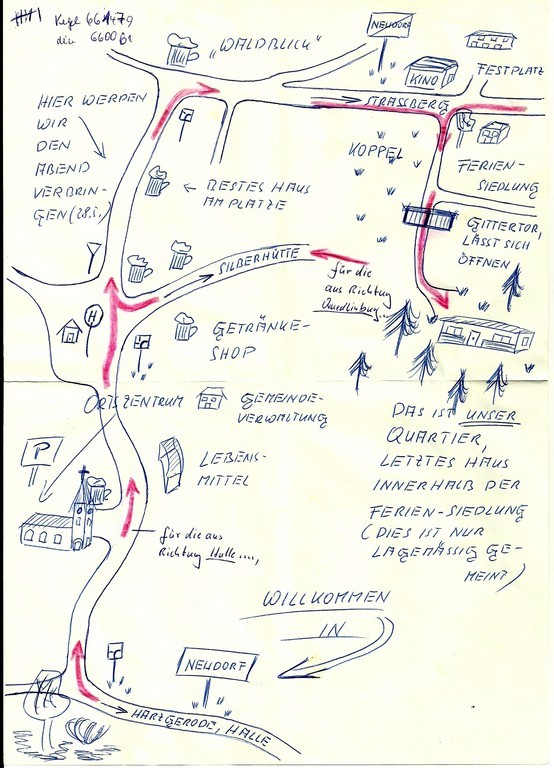 Kegl 661479
die 660061
"WALDBLICK"
NEUDORF
KINO
FESTPLATZ
STRASSBERG
HIER WERDEN
WIR
DEN
ABEND
VERBRIN-
GEN (28.5.)
KOPPEL
FERIEN-
SIEDLUNG
← BESTES HAUS
AM PLATZE
GITTERTOR,
LÄSST SICH
ÖFFNEN
SILBERHÜTTE
für die
aus Richtung
Quedlinburg...
H
GETRÄNKE-
SHOP
ORTSZENTRUM
GEMEINDE-
VERWALTUNG
P
LEBENS-
MITTEL
DAS IST UNSER
QUARTIER,
LETZTES HAUS
INNERHALB DER
FERIEN-SIEDLUNG
(DIES IST NUR
LAGEMÄSSIG GE-
MEINT)
für die aus
Richtung Halle....,
WILLKOMMEN
IN
NEUDORF
HARZGERODE, HALLE